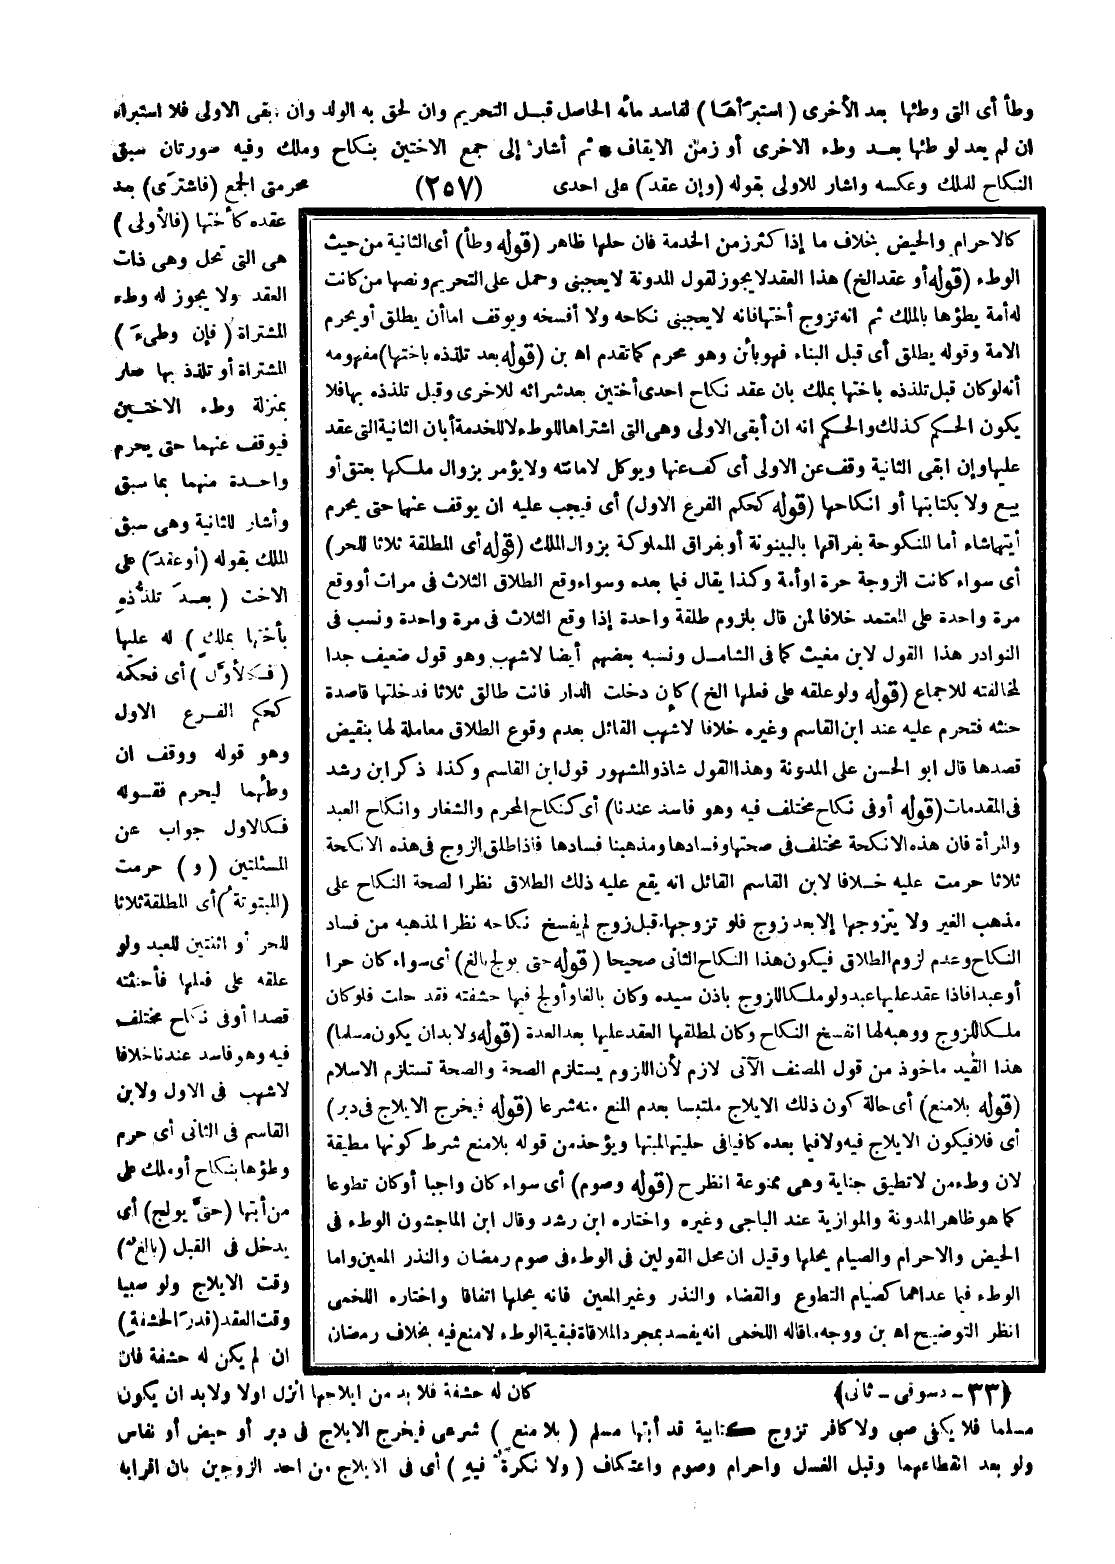 وطأ أى التى وطئها بعد الأخرى ( استبرَأهَا ) لفاسد مائه الحاصل قبل التحريم وان لحق به الولد وان بقى الاولى فلا استبراء
ان لم يعد لوطئها بعد وطء الاخرى أو زمن الايقاف * ثم أشار إلى جمع الاختين بنكاح وملك وفيه صورتان سبق
النكاح للملك وعكسه واشار للاولى بقوله (وإن عقدَ) على احدى
(٢٥٧)
محرمتى الجمع (فاشترَى) بعد
عقده كأختها (فالأولى)
هى التى تحل وهى ذات
العقد ولا يجوز له وطء
المشتراة ( فإن وطىءَ )
المشتراة أو تلذذ بها صار
بمنزلة وطء الاختين
فيوقف عنهما حتى يحرم
واحدة منهما بما سبق
وأشار للثانية وهى سبق
الملك بقوله (أوعقدَ) على
الاخت ( بعدَ تلذُّذهِ
بأختها بملكٍ ) له عليها
( فكالأوَّل ) أى فحكمه
كحكم الفرع الاول
وهو قوله ووقف ان
وطئهما ليحرم فقوله
فكالاول جواب عن
المسئلتين ( و ) حرمت
(المبتوتةُ) أى المطلقة ثلاثا
للحر أو اثنتين للعبد ولو
علقه على فعلها فأحنثته
قصدا أوفى نكاح مختلف
فيه وهو فاسد عندنا خلافا
لاشهب فى الاول ولابن
القاسم فى الثانى أى حرم
وطؤها بنكاح أو ملك على
من أبتها (حتىَّ يولج) أى
يدخل فى القبل (بالغٌ)
وقت الايلاج ولو صبيا
وقت العقد (قدرَ الحشفةِ)
ان لم يكن له حشفة فان
كالاحرام والحيض بخلاف ما إذا كثر زمن الخدمة فان حلها ظاهر (قوله وطأ) أى الثانية من حيث
الوطء (قوله أو عقد الخ) هذا العقد لا يجوز لقول المدونة لا يعجبنى وحمل على التحريم ونصها من كانت
له أمة يطؤها بالملك ثم انه تزوج أختها فانه لا يعجبنى نكاحه ولا أفسخه ويوقف اما أن يطلق أو يحرم
الامة وقوله يطلق أى قبل البناء فهو بائن وهو محرم كما تقدم اه بن (قوله بعد تلذذه باختها) مفهومه
أنه لو كان قبل تلذذه باختها بملك بان عقد نكاح احدى أختين بعد شرائه للاخرى وقبل تلذذه بها فلا
يكون الحكم كذلك والحكم انه ان أبقى الاولى وهى التى اشتراها للوطء لا للخدمة أبان الثانية التى عقد
عليها وإن ابقى الثانية وقف عن الاولى أى كف عنها ويوكل لامانته ولا يؤمر بزوال ملكها بعتق أو
بيع ولا بكتابتها أو انكاحها (قوله كحكم الفرع الاول) أى فيجب عليه ان يوقف عنها حتى يحرم
أيتهما شاء أما المنكوحة بفراقها بالبينونة أو بفراق المملوكة بزوال الملك (قوله أى المطلقة ثلاثا للحر)
أى سواء كانت الزوجة حرة أو أمة وكذا يقال فيما بعده وسواء وقع الطلاق الثلاث فى مرات أو وقع
مرة واحدة على المعتمد خلافا لمن قال بلزوم طلقة واحدة إذا وقع الثلاث فى مرة واحدة ونسب فى
النوادر هذا القول لابن مغيث كما فى الشامل ونسبه بعضهم أيضا لاشهب وهو قول ضعيف جدا
لمخالفته للاجماع (قوله ولو علقه على فعلها الخ) كإن دخلت الدار فانت طالق ثلاثا فدخلتها قاصدة
حنثه فتحرم عليه عند ابن القاسم وغيره خلافا لاشهب القائل بعدم وقوع الطلاق معاملة لها بنقيض
قصدها قال ابو الحسن على المدونة وهذا القول شاذ والمشهور قول ابن القاسم وكذا ذكر ابن رشد
فى المقدمات (قوله أوفى نكاح مختلف فيه وهو فاسد عندنا) أى كنكاح المحرم والشغار وانكاح العبد
والمرأة فان هذه الانكحة مختلف فى صحتها وفسادها ومذهبنا فسادها فاذا طلق الزوج فى هذه الانكحة
ثلاثا حرمت عليه خلافا لابن القاسم القائل انه يقع عليه ذلك الطلاق نظرا لصحة النكاح على
مذهب الغير ولا يتزوجها إلا بعد زوج فلو تزوجها قبل زوج لم يفسخ نكاحه نظرا لمذهبه من فساد
النكاح وعدم لزوم الطلاق فيكون هذا النكاح الثانى صحيحا (قوله حتى يولج بالغ) أى سواء كان حرا
أو عبدا فاذا عقد عليها عبد ولو ملكا للزوج باذن سيده وكان بالغا وأولج فيها حشفته فقد حلت فلو كان
ملكا للزوج ووهبه لها انفسخ النكاح وكان لمطلقها العقد عليها بعد العدة (قوله ولابد ان يكون مسلما)
هذا القيد ماخوذ من قول المصنف الآتى لازم لأن اللزوم يستلزم الصحة والصحة تستلزم الاسلام
(قوله بلا منع) أى حالة كون ذلك الايلاج ملتبسا بعدم المنع منه شرعا (قوله فيخرج الايلاج فى دبر)
أى فلا فيكون الايلاج فيه ولا فيما بعده كافيا فى حليتها لمبتها ويؤخذ من قوله بلا منع شرط كونها مطيقة
لان وطء من لا تطيق جناية وهى ممنوعة انظر ح (قوله وصوم) أى سواء كان واجبا أو كان تطوعا
كما هو ظاهر المدونة والموازية عند الباجى وغيره واختاره ابن رشد وقال ابن الماجشون الوطء فى
الحيض والاحرام والصيام يحلها وقيل ان محل القولين فى الوطء فى صوم رمضان والنذر المعين واما
الوطء فيما عداهما كصيام التطوع والقضاء والنذر وغير المعين فانه يحلها اتفاقا واختاره اللخمى
انظر التوضيح اه بن ووجه ماقاله اللخمى انه يفسد بمجرد الملاقاة فبقية الوطء لامنع فيه بخلاف رمضان
(٣٣ - دسوقى - ثانى)
كان له حشفة فلا بد من ايلاجها انزل اولا ولابد ان يكون
مسلما فلا يكفى صبى ولا كافر تزوج كتابية قد أبتها مسلم ( بلا منع ) شرعى فيخرج الايلاج فى دبر أو حيض أو نفاس
ولو بعد انقطاعهما وقبل الغسل واحرام وصوم واعتكاف ( ولا نكرةَ فيهِ ) أى فى الايلاج من احد الزوجين بان اقرا به